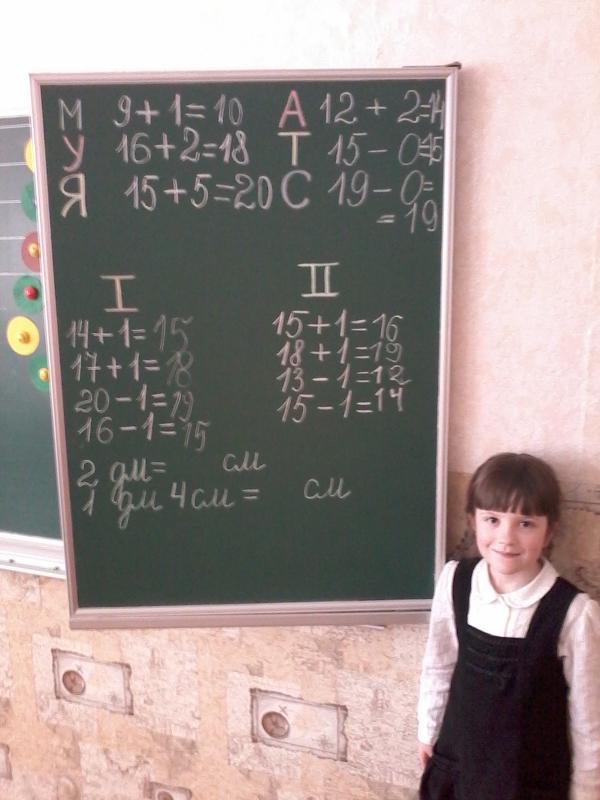 М 9+1=10 А 12+2=14
У 16+2=18 Т 15-0=15
Я 15+5=20 С 19-0=
=19
I II
14+1=15 15+1=16
17+1=18 18+1=19
20-1=19 13-1=12
16-1=15 15-1=14
2 дм= см
1 дм 4 см = см